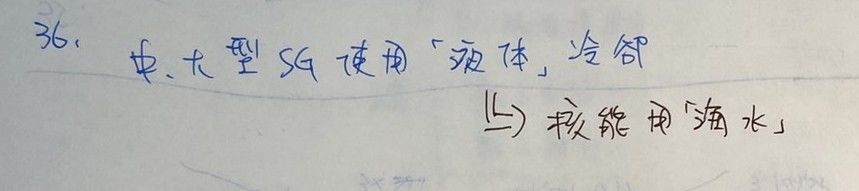 36. 中、大型 SG 使用「液体」冷卻
↳ 核能用「海水」